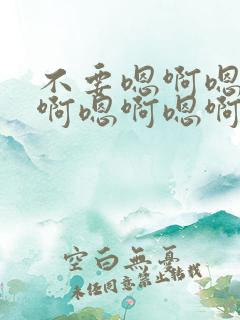 不要嗯啊嗯
啊嗯啊嗯啊
空白無憂
未经同意禁止转载